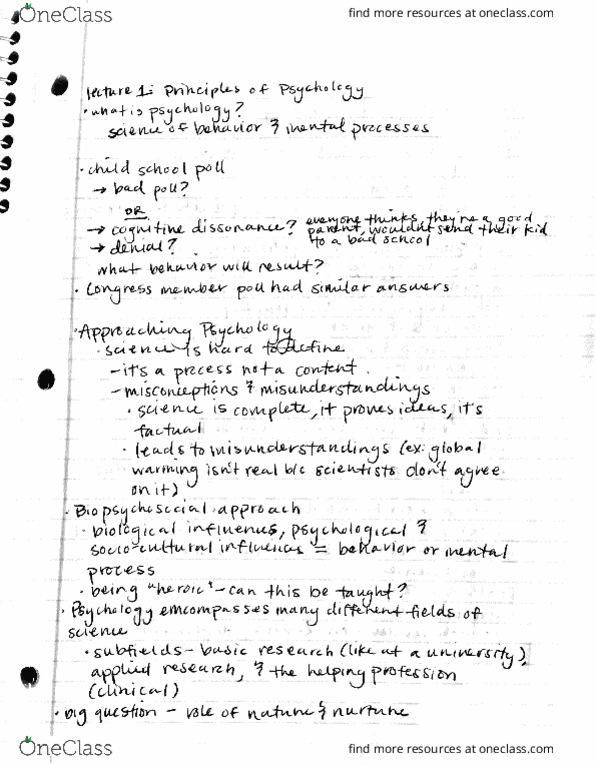 OneClass
find more resources at oneclass.com
lecture 1: Principles of Psychology
• what is psychology?
science of behavior & mental processes
• child school poll
→ bad poll?
OR
→ cognitive dissonance? everyone thinks, they're a good
parent, wouldn't send their kid
→ denial? to a bad school
what behavior will result?
• Congress member poll had similar answers
• Approaching Psychology
• science is hard to define
- it's a process not a content.
- misconceptions & misunderstandings
• science is complete, it proves ideas, it's
factual
• leads to misunderstandings (ex: global
warming isn't real b/c scientists don't agree
on it)
• Biopsychosocial approach
• biological influences, psychological &
socio-cultural influences = behavior or mental
process
• being "heroic" - can this be taught?
• Psychology emcompasses many different fields of
science
• subfields - basic research (like at a university),
applied research, & the helping profession
(clinical)
• big question - role of nature & nurture
OneClass
find more resources at oneclass.com